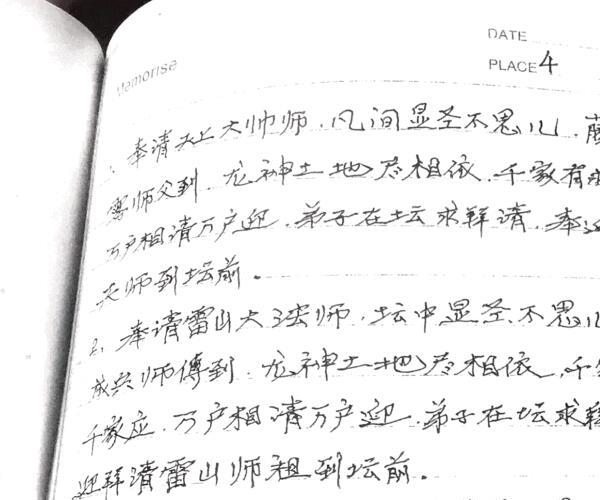 DATE
Memorise
PLACE 4
1、奉请天上大帅师．凡间显圣不思儿．
雪师父到．龙神土地尽相依．千家有求
万户相请万户迎．弟子在坛求拜请．奉迎
天师到坛前．
2、奉请雷山大法师．坛中显圣不思儿
成兴师傅到．龙神土地尽相依．千家
千家应．万户相请万户迎．弟子在坛求拜
迎拜清雷山师祖到坛前．